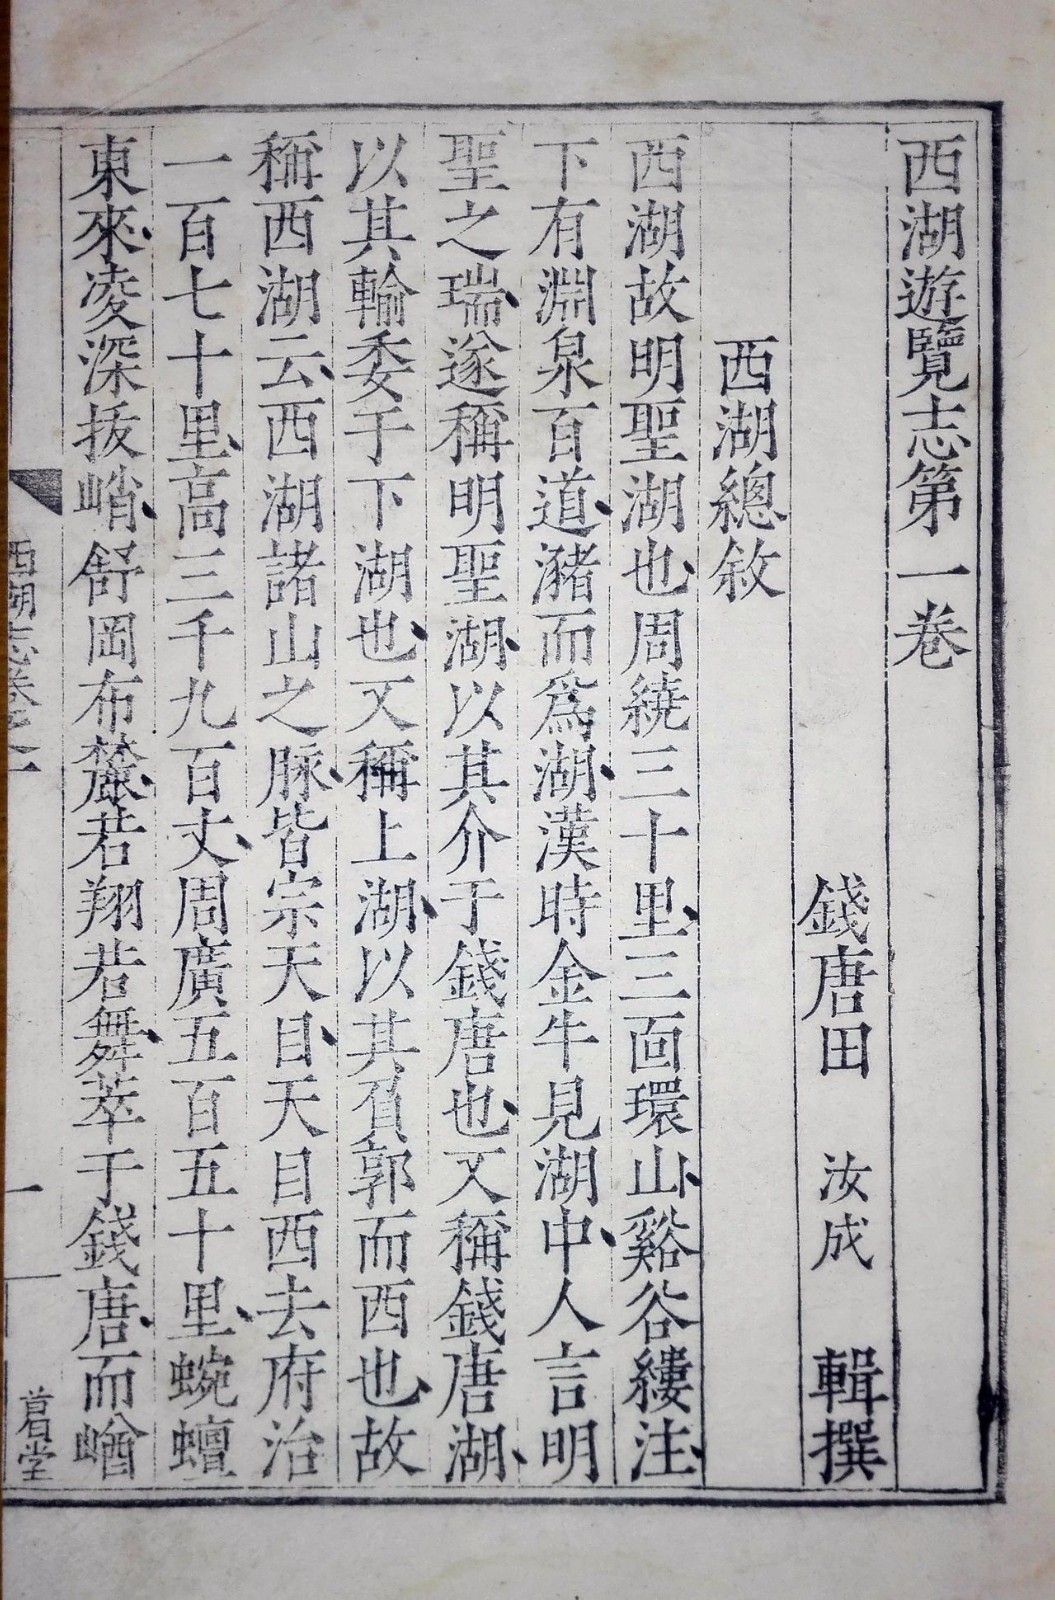 西湖遊覽志第一卷
錢唐田 汝成 輯撰
西湖總敘
西湖故明聖湖也周繞三十里三面環山谿谷縷注
下有淵泉百道瀦而爲湖漢時金牛見湖中人言明
聖之瑞遂稱明聖湖以其介于錢唐也又稱錢唐湖
以其輸委于下湖也又稱上湖以其負郭而西也故
稱西湖云西湖諸山之脉皆宗天目天目西去府治
一百七十里高三千九百丈周廣五百五十里蜿蟺
東來凌深拔峭舒岡布麓若翔若舞萃于錢唐而崷
西湖志卷之一
一
堂